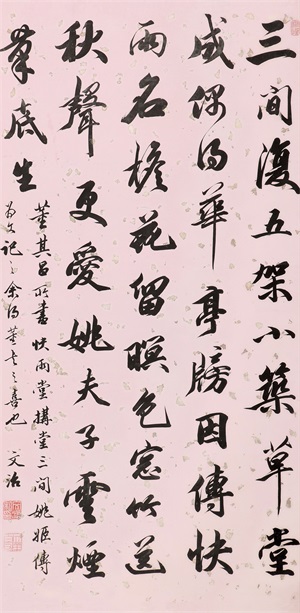 三間復五架小築草堂
成偶得華亭牓因傳快
雨名檐花留暝色窓竹送
秋聲更愛姚夫子雲煙
筆底生
董其昌所書快雨堂搆堂三間姚姬傳
為文記之余得董之喜也 文治